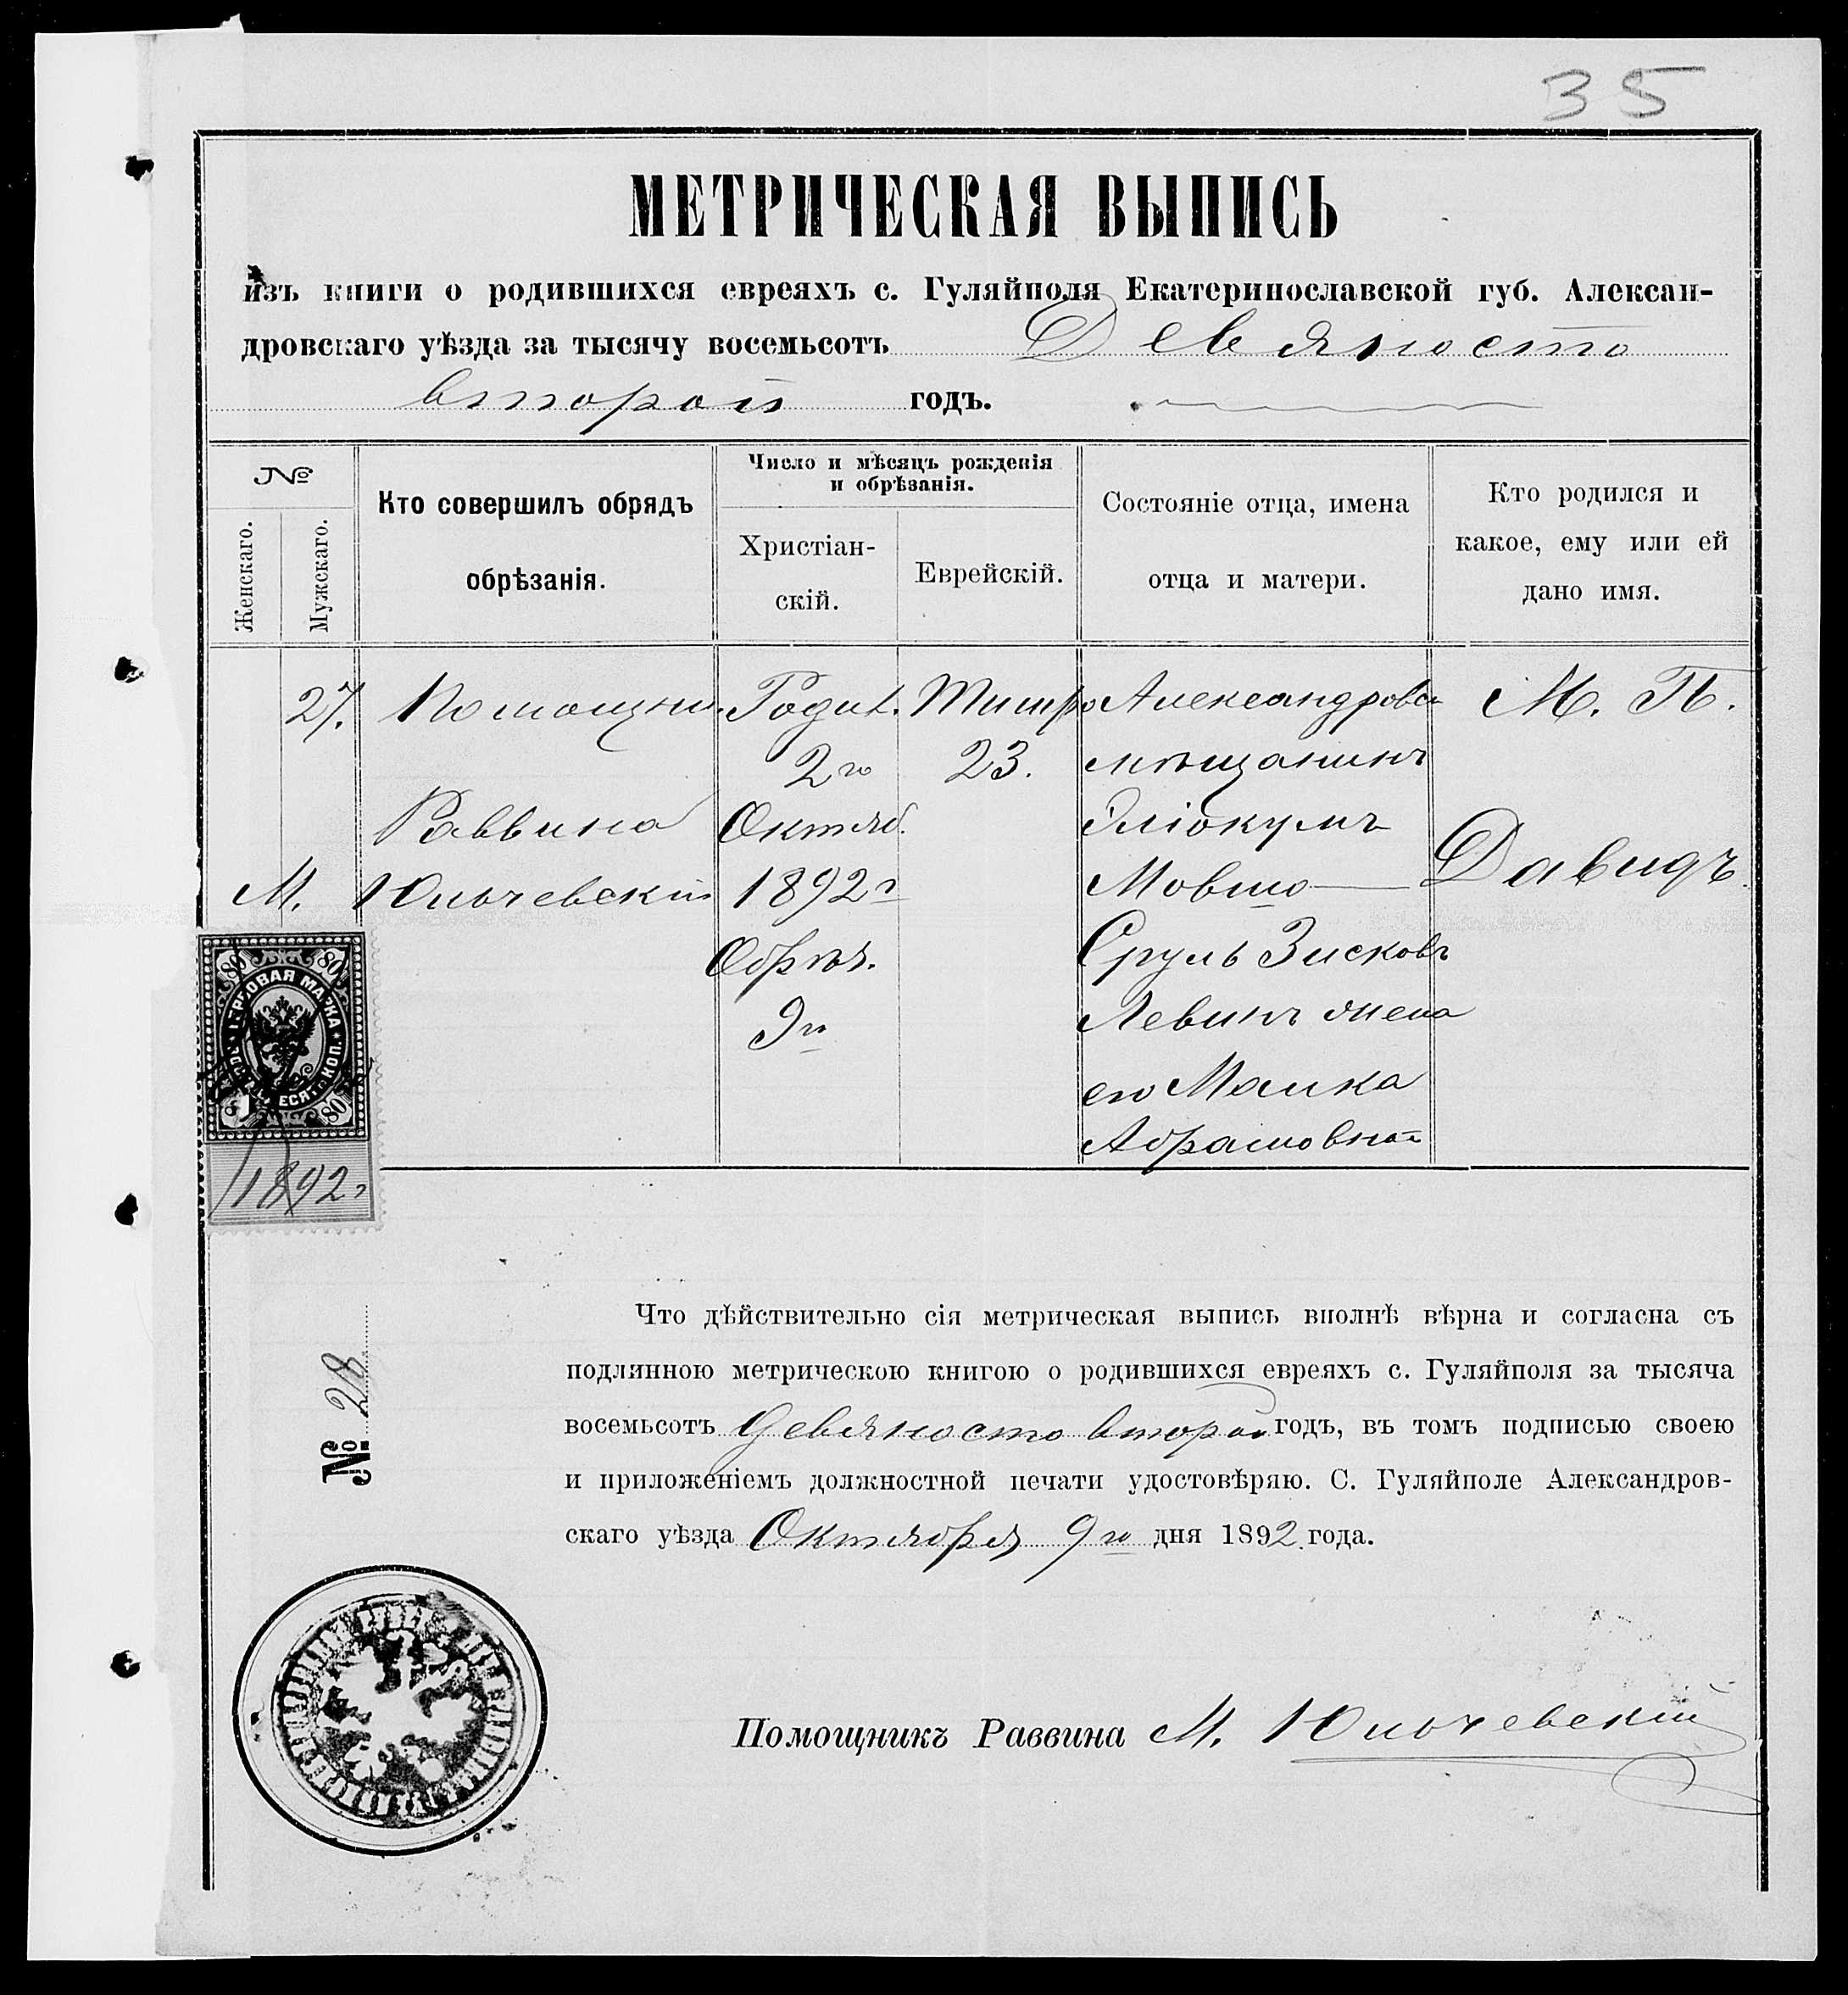 35
МЕТРИЧЕСКАЯ ВЫПИСЬ
изъ книги о родившихся евреяхъ с. Гуляйполя Екатеринославской губ. Алексан-
дровскаго уѣзда за тысячу восемьсотъ Девяносто
второй годъ.
№
Женскаго.
Мужскаго.
Кто совершилъ обрядъ
обрѣзанія.
Число и мѣсяцъ рожденія
и обрѣзанія.
Христіан-
скій.
Еврейскій.
Состояніе отца, имена
отца и матери.
Кто родился и
какое, ему или ей
дано имя.
27.
Помощни.
Раввина
М. Юльчевскій
Родил.
2го
Октяб.
1892г
Обрѣз.
9го
Тишри
23.
Александровск
мѣщанинъ
Эліокумъ
Мовшо
Сруль Зисковъ
Левинъ жена
его Малка
Абрамовна
М. П.
Давидъ
80
80
ГЕРБОВАЯ МАРКА
КОП.
80
1892г
№ 28
Что дѣйствительно сія метрическая выпись вполнѣ вѣрна и согласна съ
подлянною метрическою книгою о родившихся евреяхъ с. Гуляйполя за тысяча
восемьсотъ девяносто второй годъ, въ томъ подписью своею
и приложеніемъ должностной печати удостовѣряю. С. Гуляйполе Александров-
скаго уѣзда Октября 9го дня 1892 года.
Помощникъ Раввина М. Юльчевскій